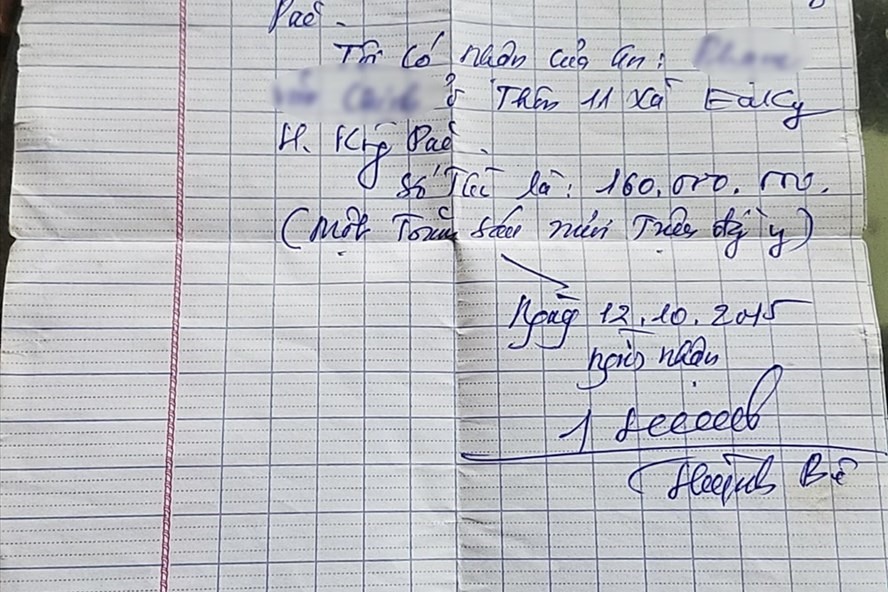 Pac.
Tôi có nhận của an:
ở Thôn 11 Xã EaKly
H. Krông Pac.
Số Tiền là: 160.000.000.
(Một Trăm Sáu mươi Triệu đồng y)
Ngày 12.10.2015
người nhận
Huỳnh Bê